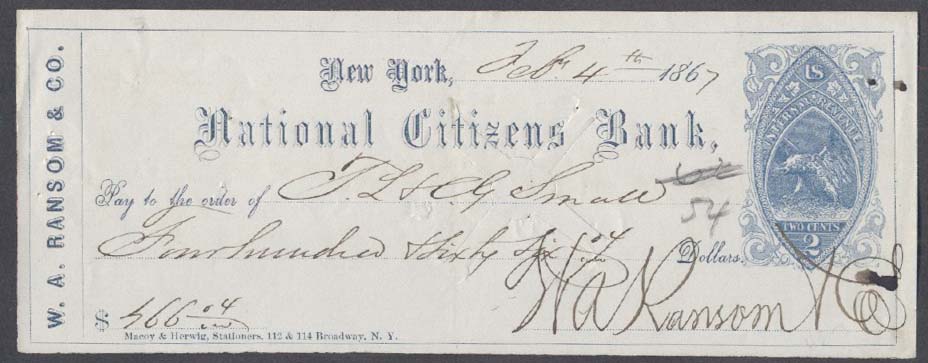 W. A. RANSOM & CO.
New York, Feb. 4th 1867
National Citizens Bank,
Pay to the order of T. L. & G Small
54
Four hundred & Sixty Six 04/100 Dollars.
$ 466 04/100
W A Ransom & Co
Macoy & Herwig, Stationers, 112 & 114 Broadway, N. Y.
US
INTER. REVENUE
TWO CENTS
2